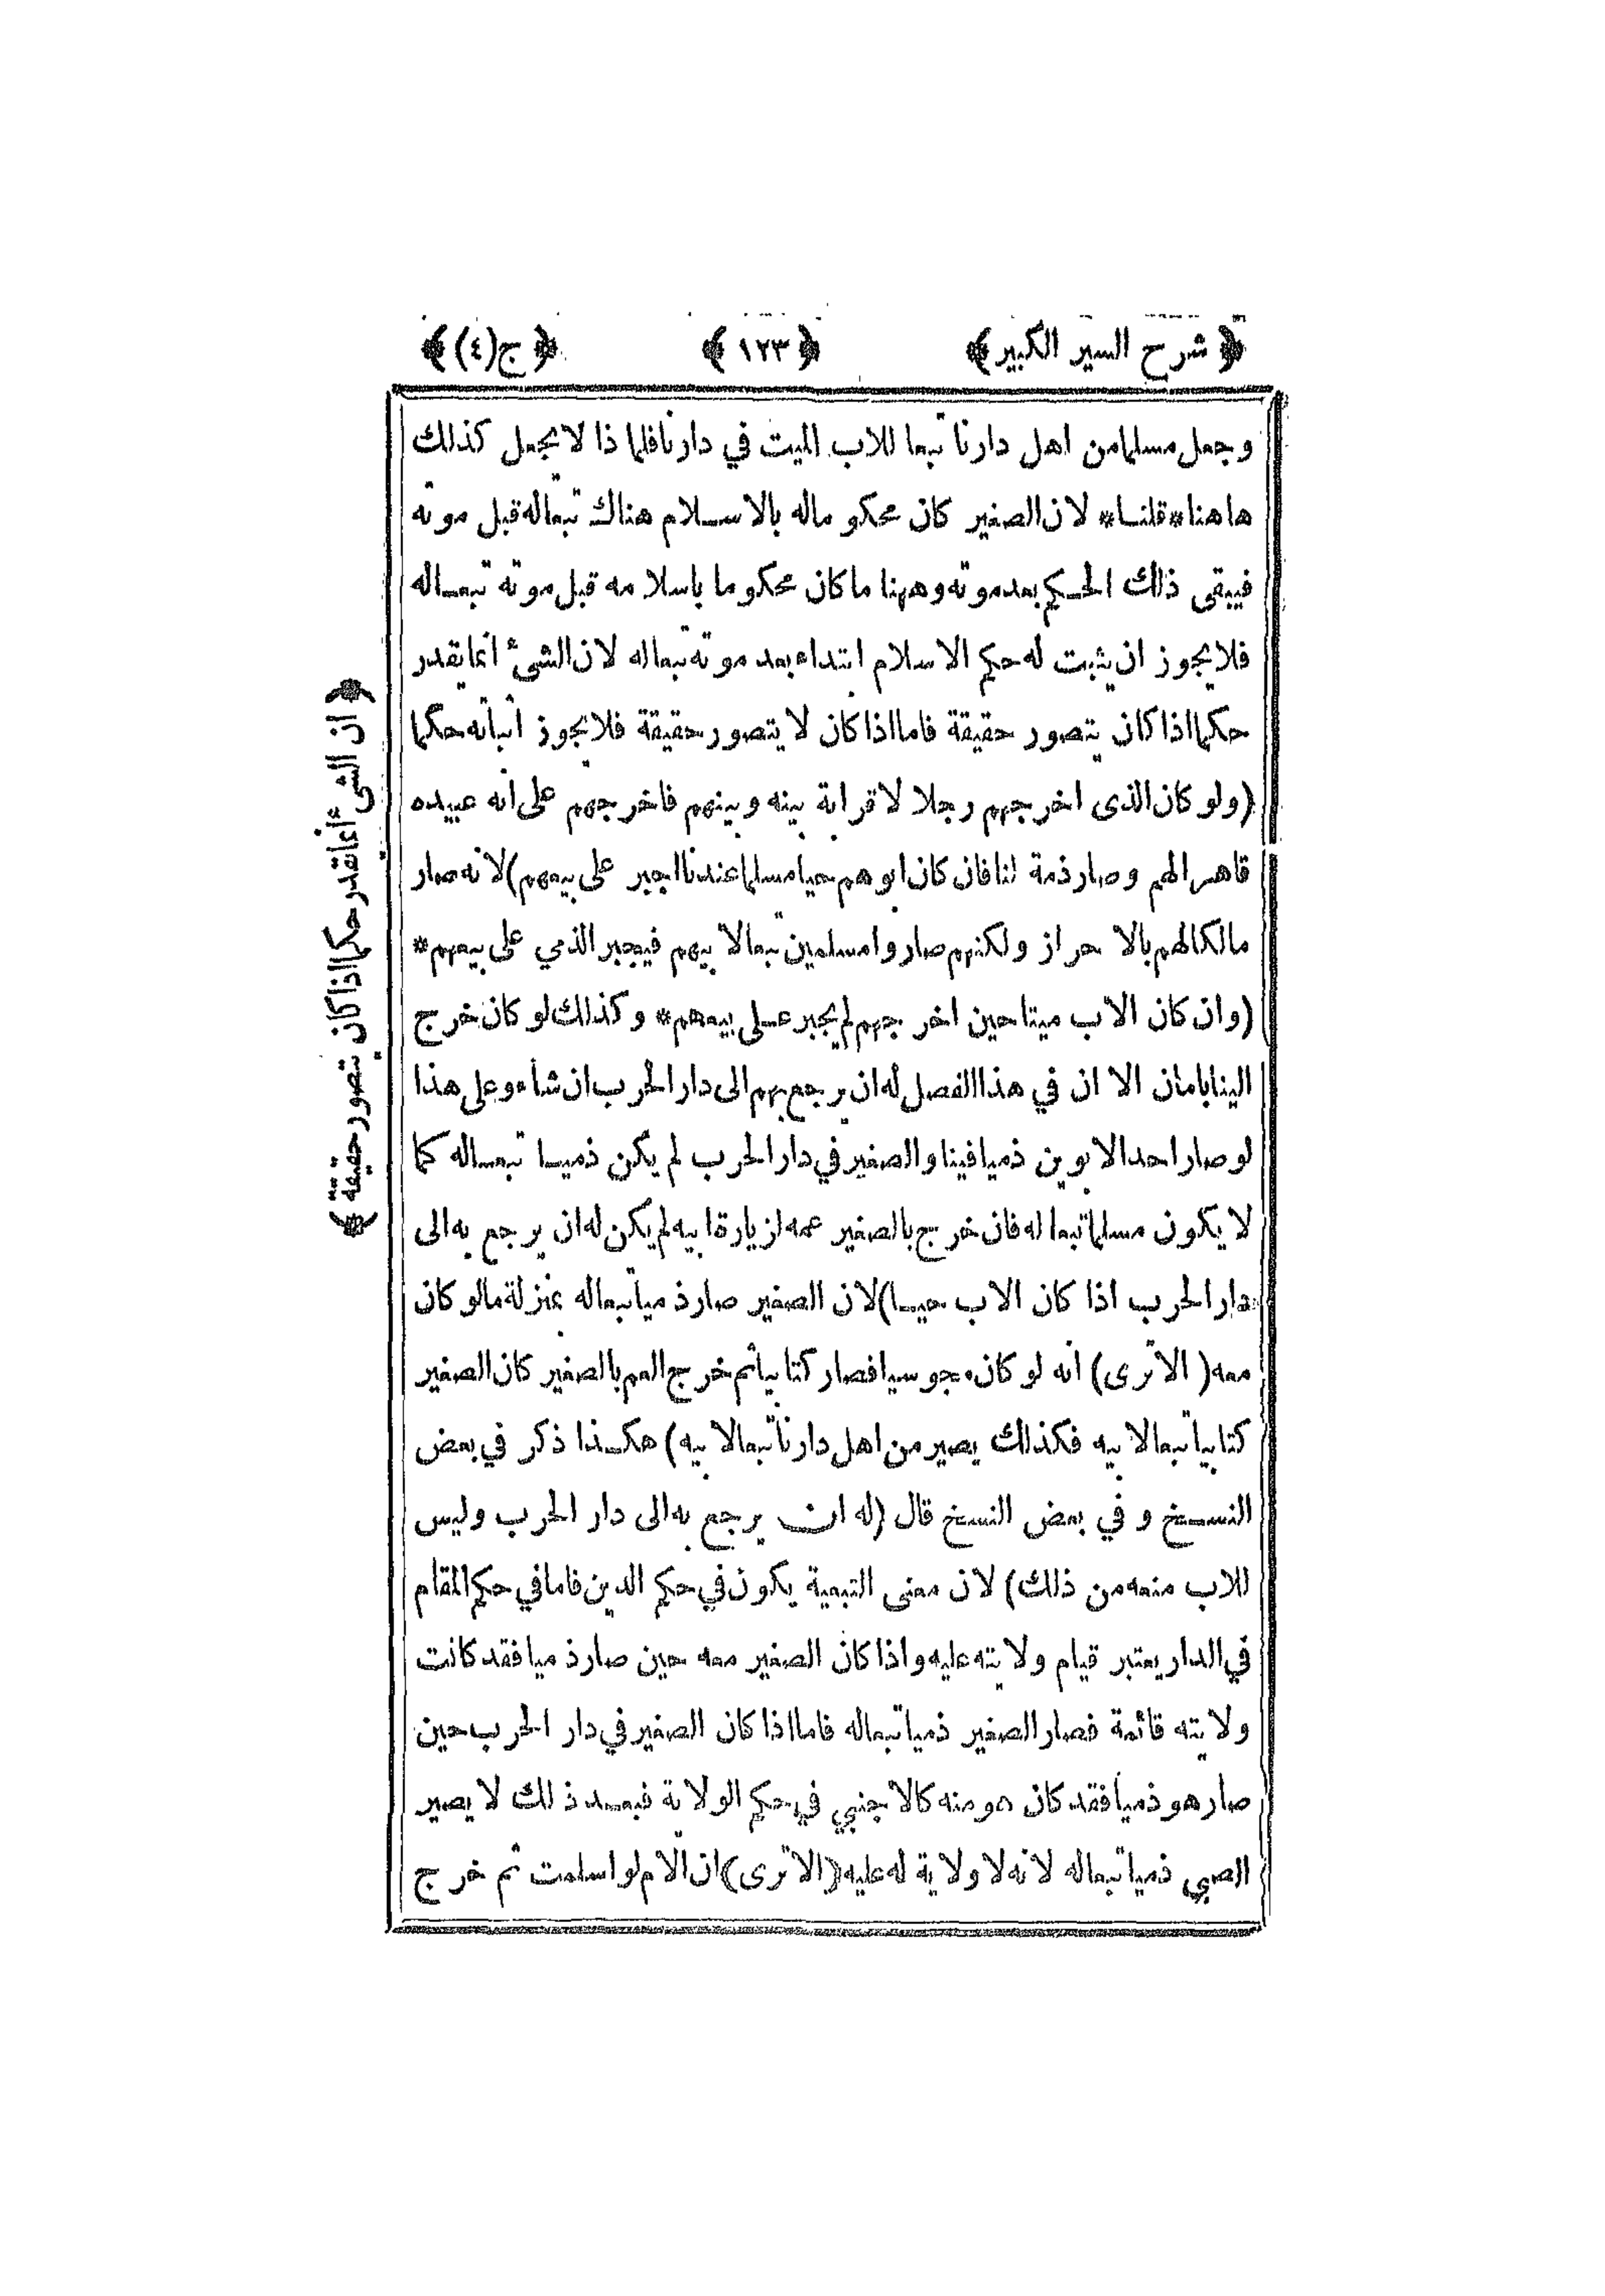 ﴿ شرح السير الكبير ﴾ ﴿ ١٢٣ ﴾ ﴿ ج (٤) ﴾
وجعل مسلما من اهل دارنا تبعا للاب الميت في دارنا فلما ذا لا يجعل كذلك
هاهنا * قلنا * لان الصغير كان محكو ماله بالاسلام هناك تبعاله قبل موته
فيبقى ذلك الحكم بعد موته وههنا ما كان محكوما باسلامه قبل موته تبعاله
فلا يجوز ان يثبت له حكم الاسلام ابتداء بعد موته تبعاله لان الشئ انما يقدر
حكما اذا كان يتصور حقيقة فاما اذا كان لا يتصور حقيقة فلا يجوز اثباته حكما
(ولو كان الذى اخرجهم رجلا لا قرابة بينه وبينهم فاخرجهم على انه عبيده
قاهرا لهم وصار ذمة لنا فان كان ابوهم حيا مسلما عندنا اجبر على بيعهم) لانه صار
مالكا لهم بالاحراز ولكنهم صاروا مسلمين تبعا لابيهم فيجبر الذمي على بيعهم *
(وان كان الاب ميتا حين اخرجهم لم يجبر على بيعهم * وكذلك لو كان خرج
الينا بامان الا ان في هذا الفصل له ان يرجع بهم الى دار الحرب ان شاء وعلى هذا
لو صار احد الابوين ذميا فينا والصغير في دار الحرب لم يكن ذميا تبعاله كما
لا يكون مسلما تبعا له فان خرج بالصغير عمه لزيارة ابيه لم يكن له ان يرجع به الى
دار الحرب اذا كان الاب حيا) لان الصغير صار ذميا تبعاله بمنزلة مالو كان
معه (الا ترى) انه لو كان مجوسيا فصار كتابيا ثم خرج العم بالصغير كان الصغير
كتابيا تبعا لابيه فكذلك يصير من اهل دارنا تبعا لابيه) هكذا ذكر في بعض
النسخ و في بعض النسخ قال (له ان يرجع به الى دار الحرب وليس
للاب منعه من ذلك) لان معنى التبعية يكون في حكم الدين فاما في حكم المقام
في الدار يعتبر قيام ولايته عليه واذا كان الصغير معه حين صار ذميا فقد كانت
ولايته قائمة فصار الصغير ذميا تبعاله فاما اذا كان الصغير في دار الحرب حين
صار هو ذميا فقد كان هو منه كالاجنبي في حكم الولاية فبعد ذلك لا يصير
الصبي ذميا تبعاله لانه لا ولاية له عليه (الا ترى) ان الام لو اسلمت ثم خرج
﴿ ان الشئ انما يقدر حكما اذا كان يتصور حقيقة ﴾